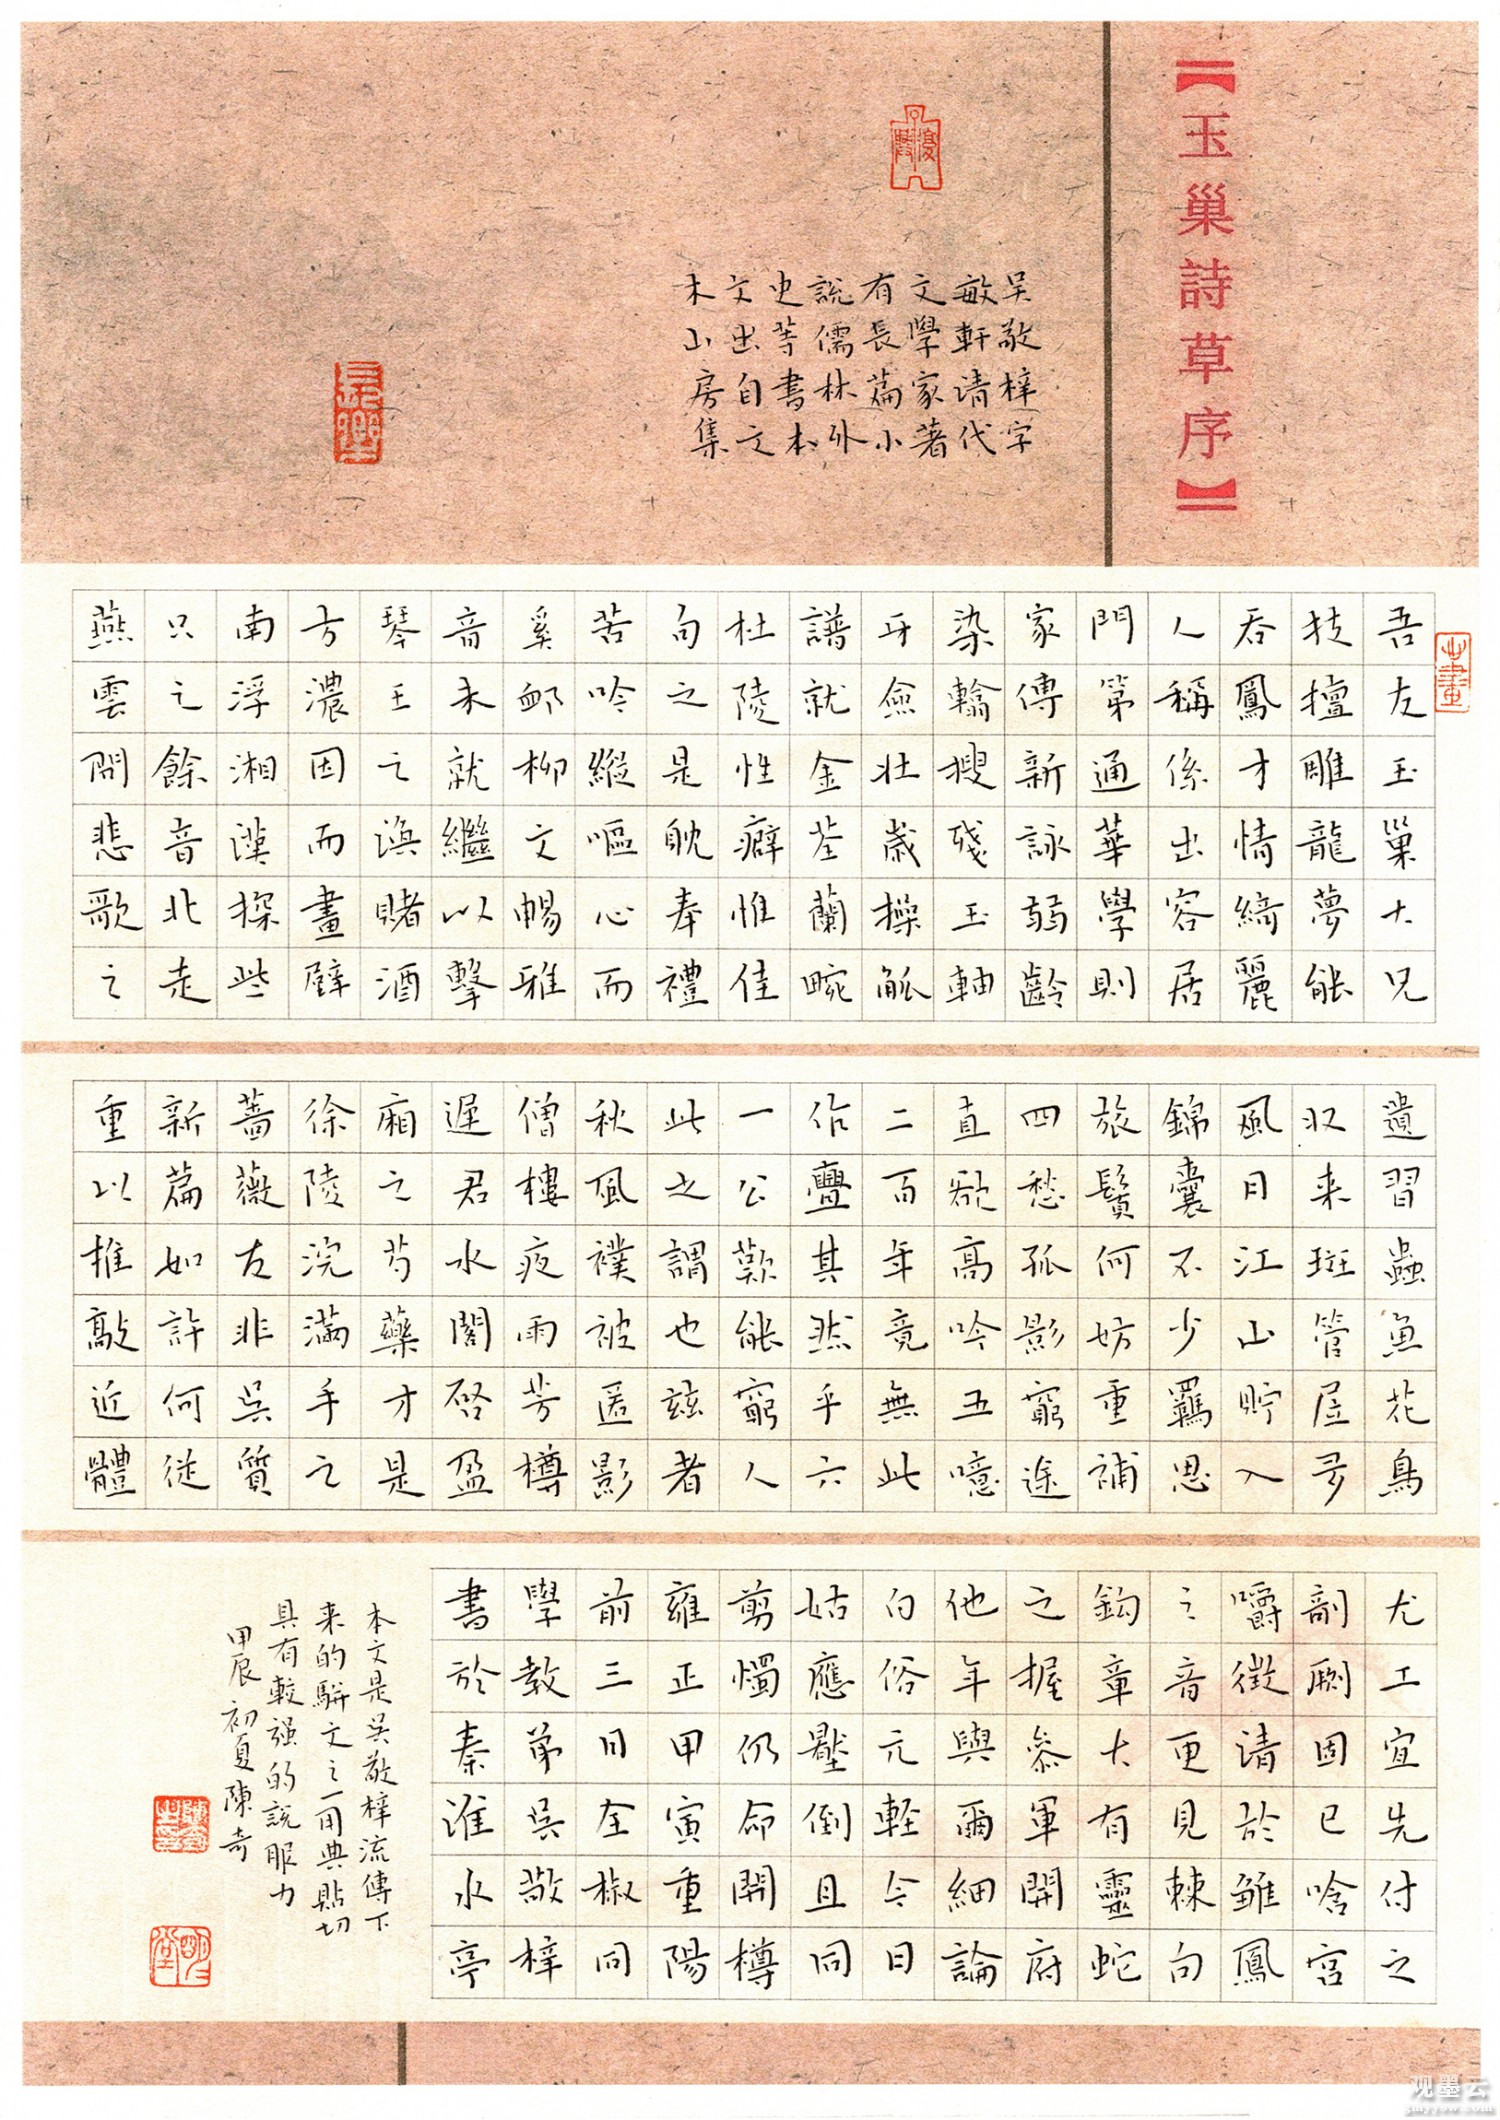 【玉巢詩草序】
吳敬梓字
敏軒清代
文學家著
有長篇小
說儒林外
史等書本
文出自文
木山房集
吾友玉巢大兄
技擅雕龍夢能
吞鳳才情綺麗
人稱係出容居
門第通華學則
家傳新詠弱齡
染翰搜殘玉軸
牙僉壯歲操觚
譜就金荃蘭畹
杜陵性癖惟佳
句之是耽奉禮
苦吟縱嘔心而
奚卹柳文暢雅
音未就繼以擊
琴王之渙賭酒
方濃因而畫壁
南浮湘漢探些
只之餘音北走
燕雲問悲歌之
遺習蟲魚花鳥
收来斑管居多
風日江山貯入
錦囊不少羈思
旅鬢何妨重補
四愁孤影窮途
直欲高吟五噫
二百年竟無此
作亹其然乎六
一公歎能窮人
此之謂也茲者
秋風襆被匿影
僧樓夜雨芳樽
遲君水閣啓盈
廂之芍藥才是
徐陵浣滿手之
薔薇友非吳質
新篇如許何從
重以推敲近體
尤工宜先付之
剞劂固已唅宮
嚼徵請於雛鳳
之音更見棘句
鈎章大有靈蛇
之握參軍開府
他年與爾細論
白俗元輕今日
姑應壓倒且同
剪燭仍命開樽
雍正甲寅重陽
前三日全椒同
學教弟吳敬梓
書於秦淮水亭
本文是吳敬梓流傳下
来的駢文之一用典貼切
具有較强的說服力
甲辰初夏陳奇
观墨云
gmyyow.com